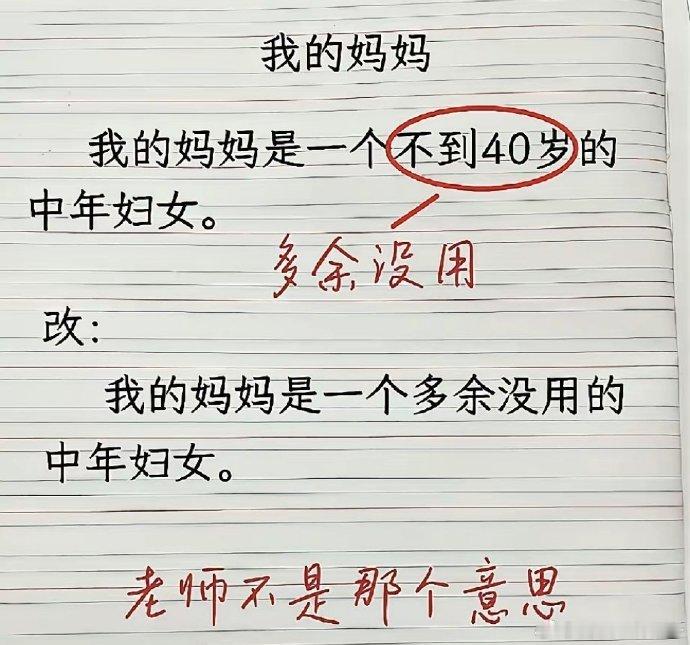 我的妈妈
我的妈妈是一个不到40岁的
中年妇女。
多余没用
改:
我的妈妈是一个多余没用的
中年妇女。
老师不是那个意思